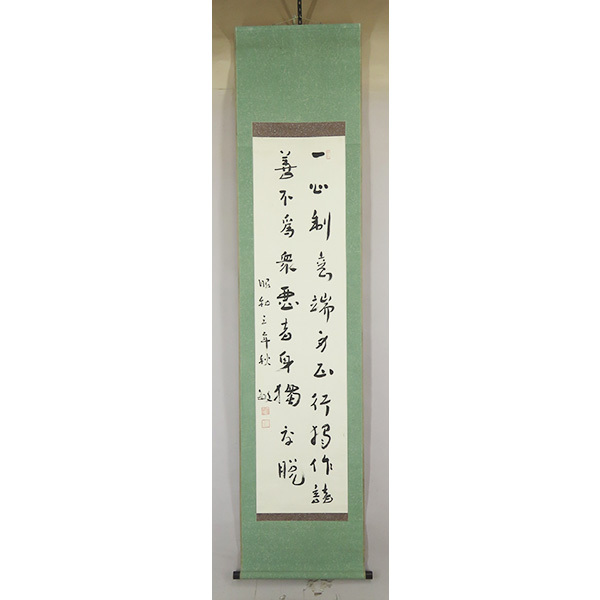 一心制意端身正行獨作諸
善不爲衆悪者身獨度脱
昭和三年秋